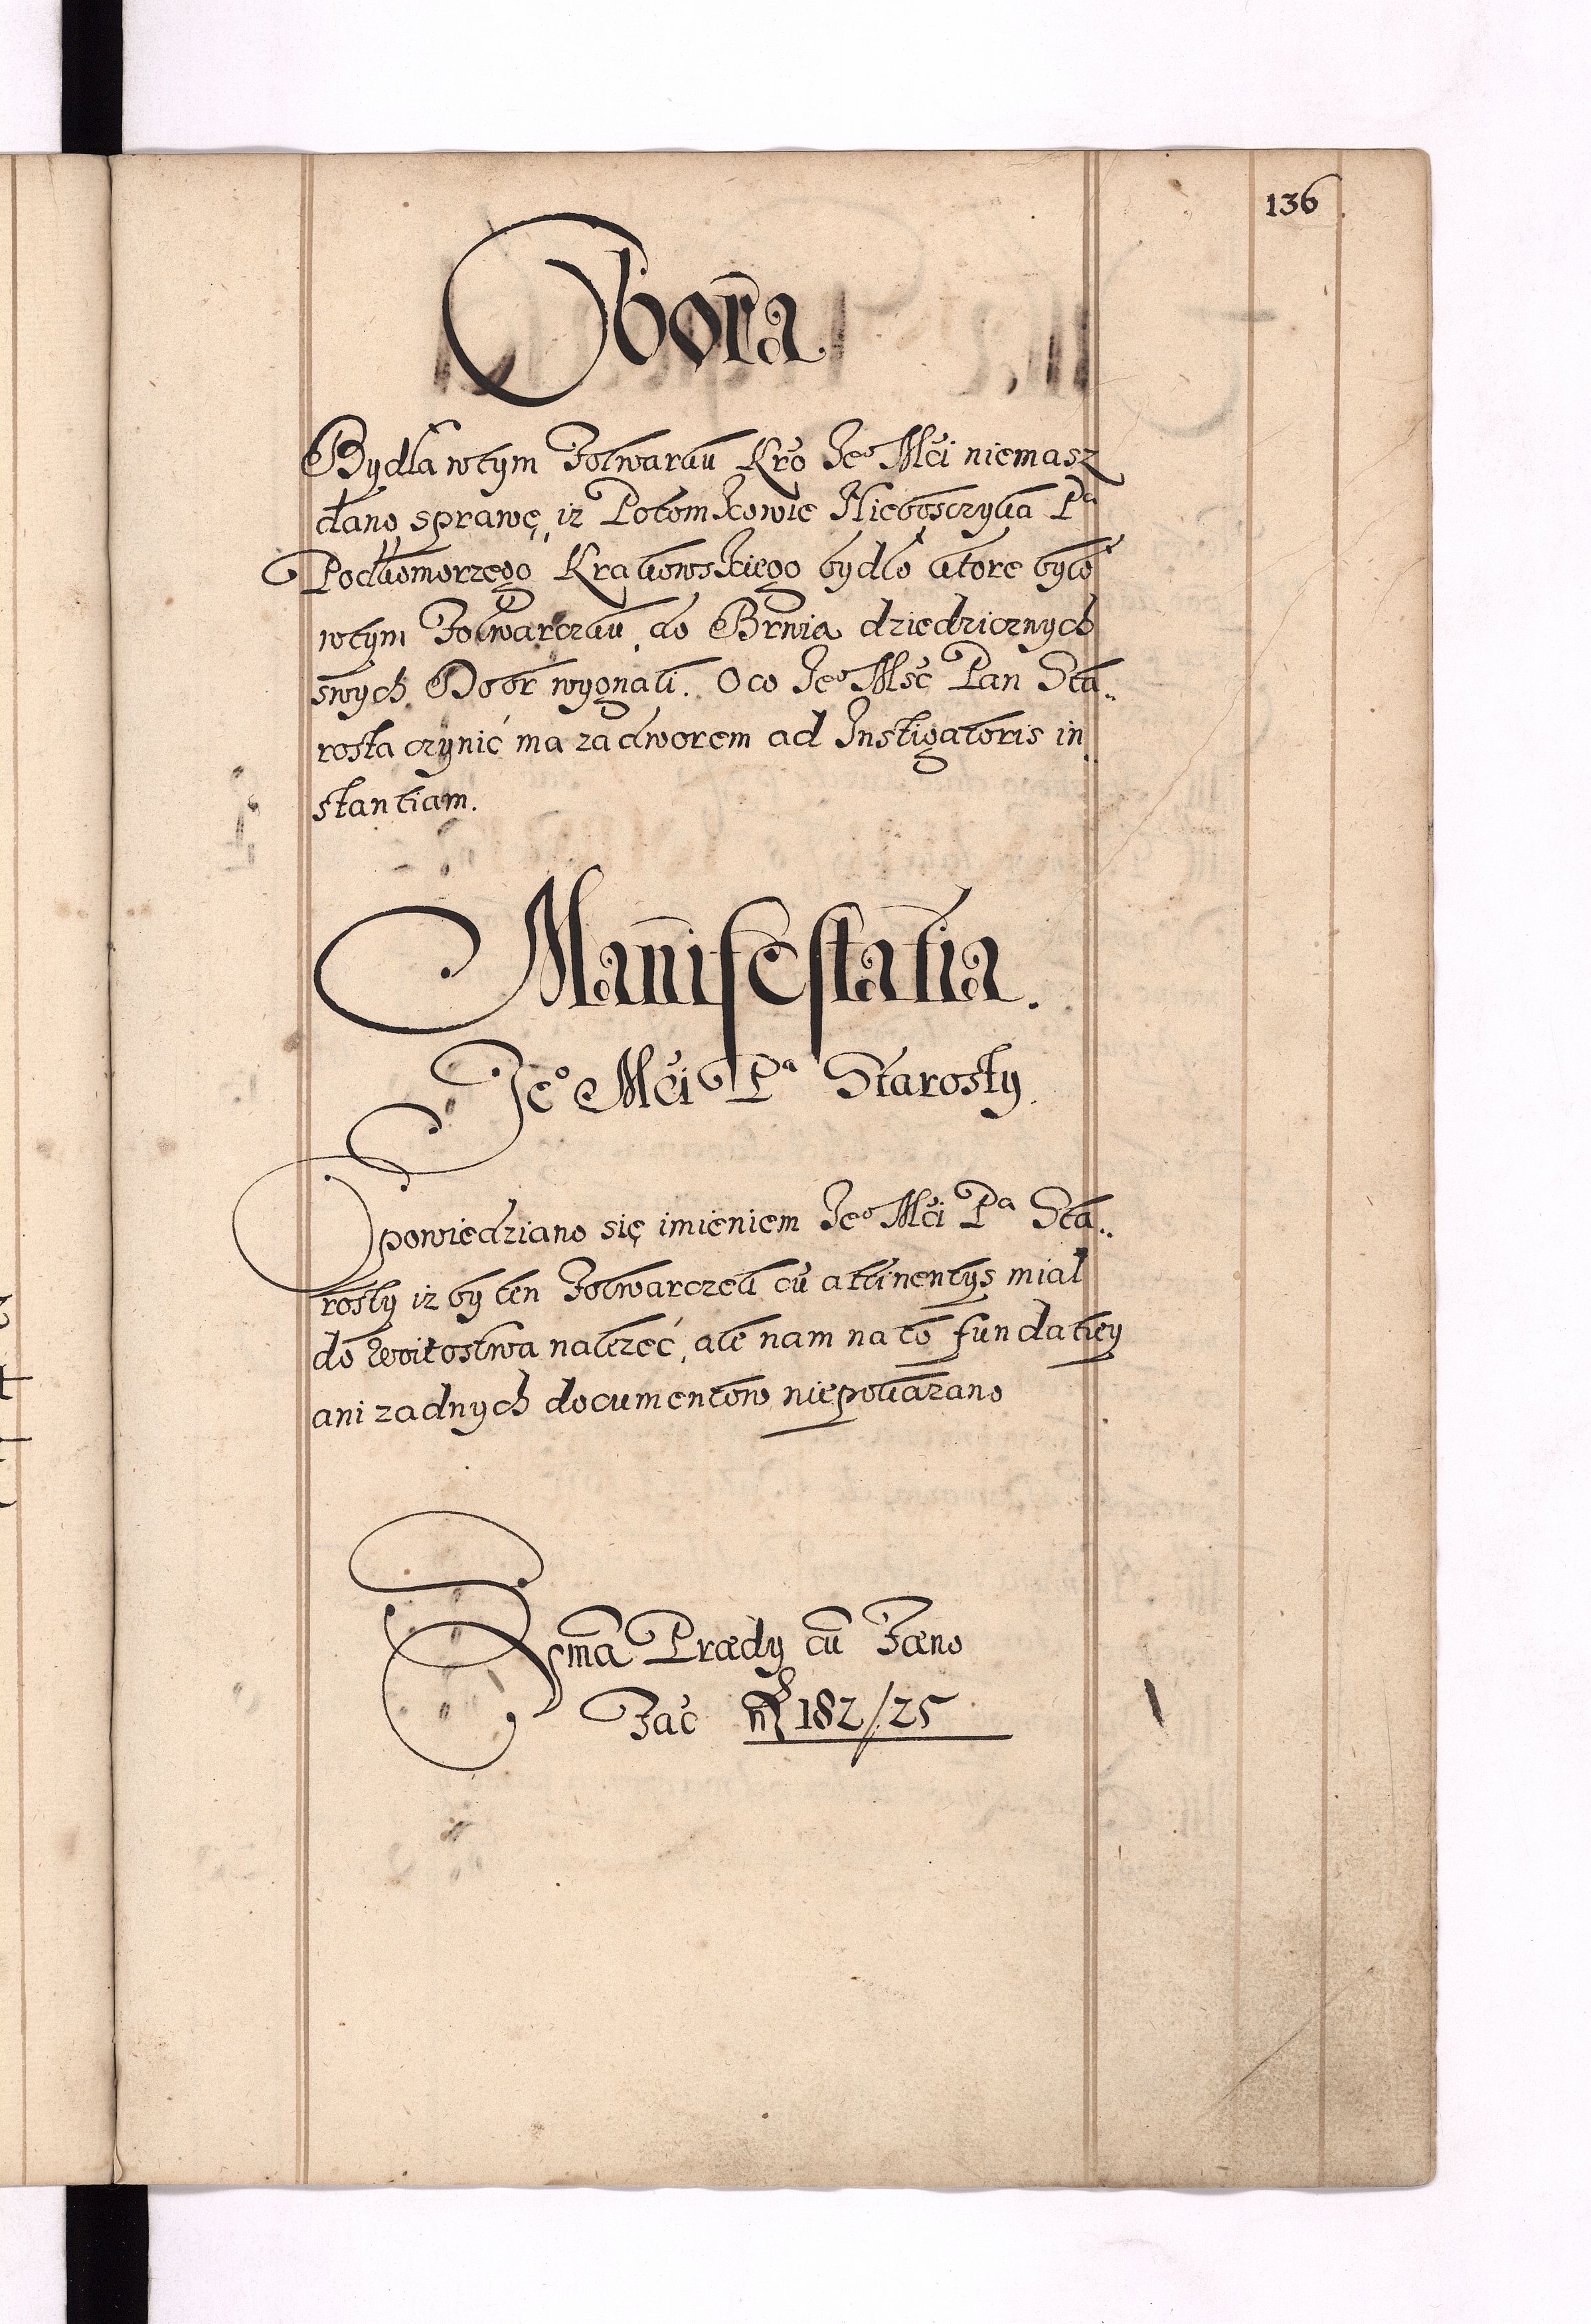 136
Obora
Bydła wtym Folwarku Kro Jeº Mści niemasz
dano sprawę, iz Potomkowie Nieboszczyka Pª
Podkomorzego Krakowskiego bydło ktore było
wtym Folwarczku do Brnia dziedzicznych
swych Dobr wygnali. Oco Jeº Msć Pan Sta..
rosta czynić ma zadworem ad Instigatoris in..
stantiam.
Manifestatia.
Jeº Mści Pª Starosty.
Opowiedziano się imieniem Jeº Mści Pª Sta..
rosty iz by ten Folwarczek cū attinentys miał
do Woitostwa nalezeć, ale nam na to fundatiey
ani zadnych documentow niepokazano
Sma Prædy cū Fæno
Fac fl 182/25